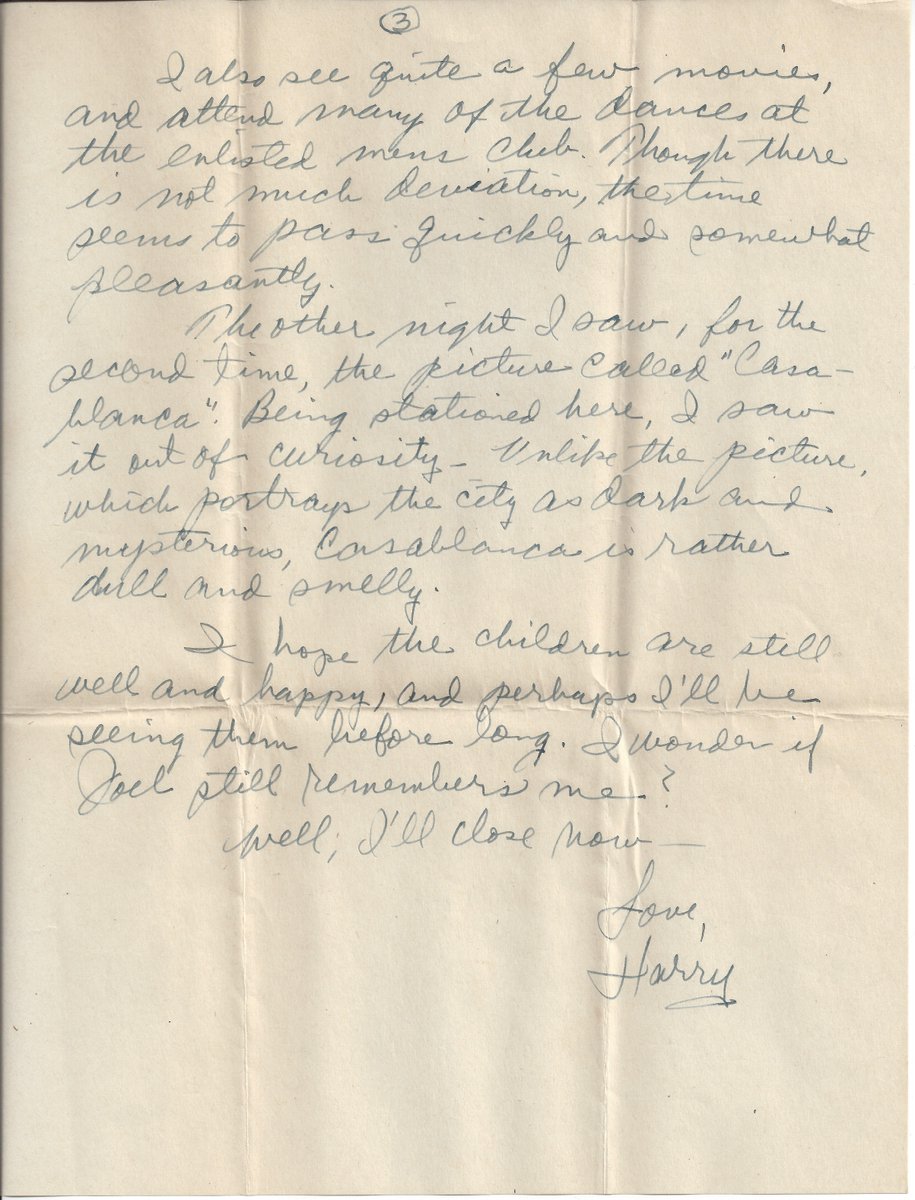 3
I also see quite a few movies,
and attend many of the dances at
the enlisted mens club. Though there
is not much deviation, the time
seems to pass quickly and somewhat
pleasantly.
The other night I saw, for the
second time, the picture called "Casa-
blanca". Being stationed here, I saw
it out of curiosity - Unlike the picture,
which portrays the city as dark and
mysterious, Casablanca is rather
dull and smelly.
I hope the children are still
well and happy, and perhaps I'll be
seeing them before long. I wonder if
Joel still remembers me?
Well, I'll close now —
Love,
Harry